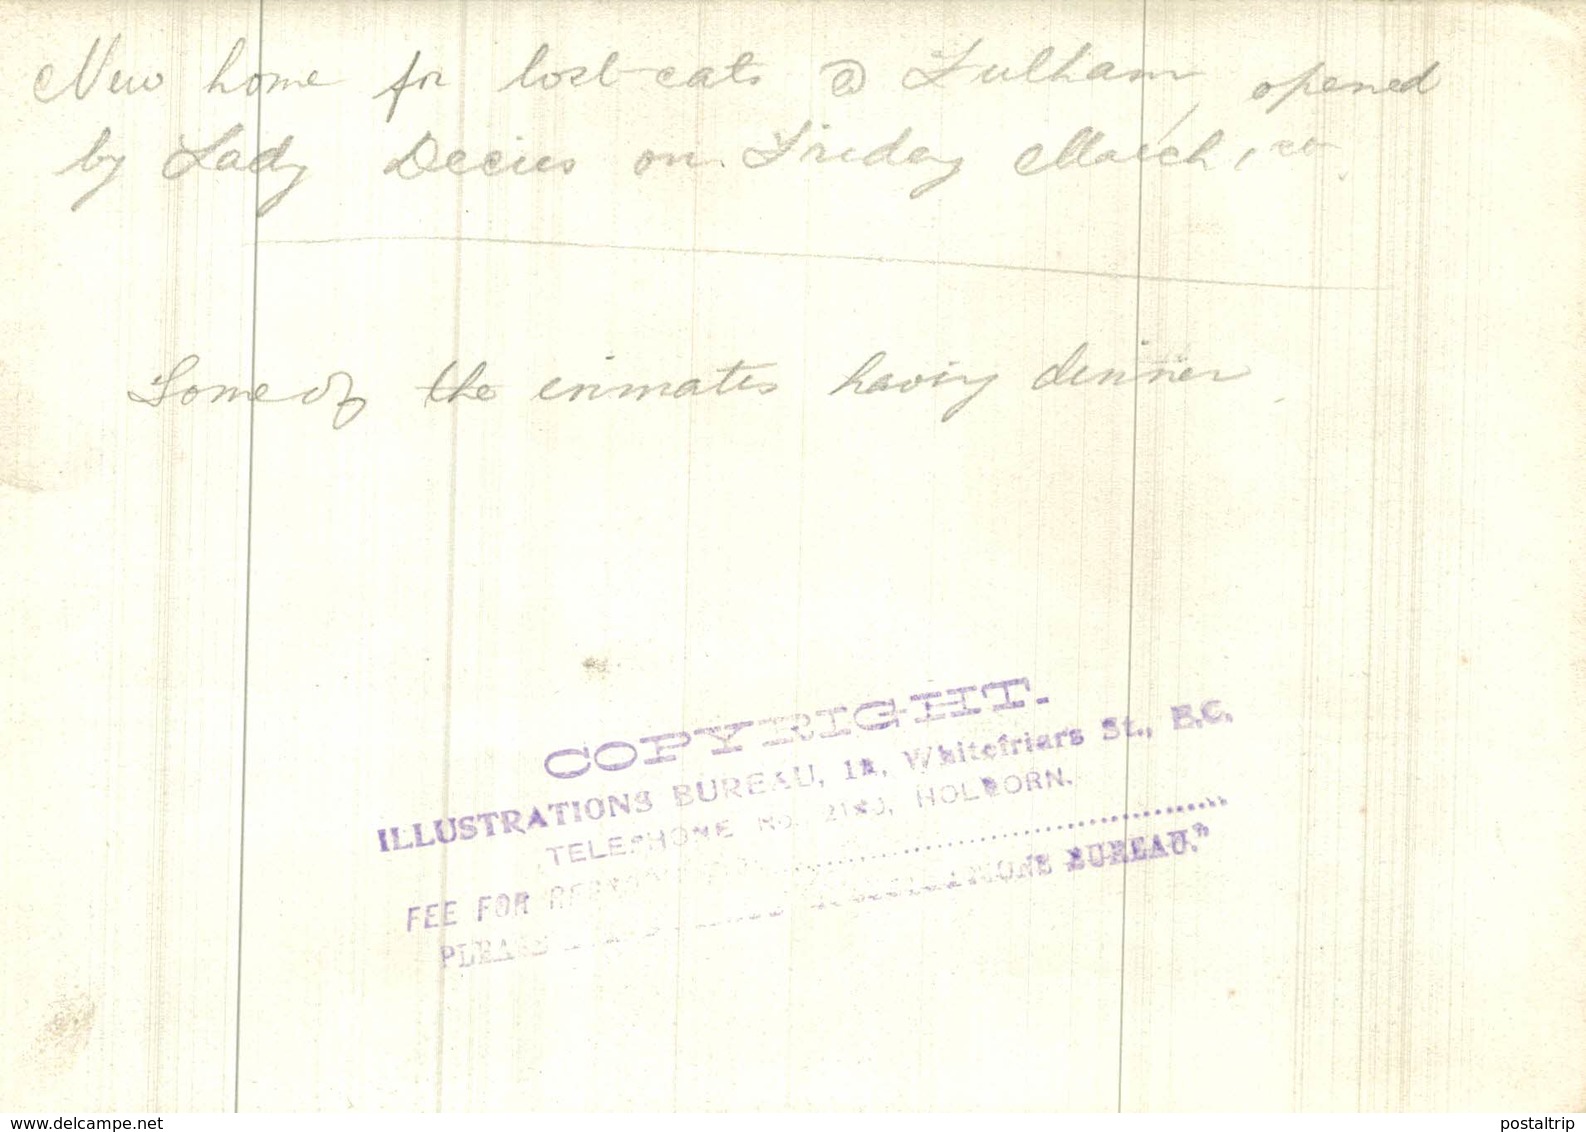 New home for lost cats @ Fulham, opened
by Lady Decies on Friday March,
Some of the inmates having dinner
COPYRIGHT.
ILLUSTRATIONS BUREAU, Whitefriars St., E.C.
TELEPHONE No. HOLBORN.
FEE FOR
PLEASE ILLUSTRATIONS BUREAU."
www.delcampe.net
postaltrip